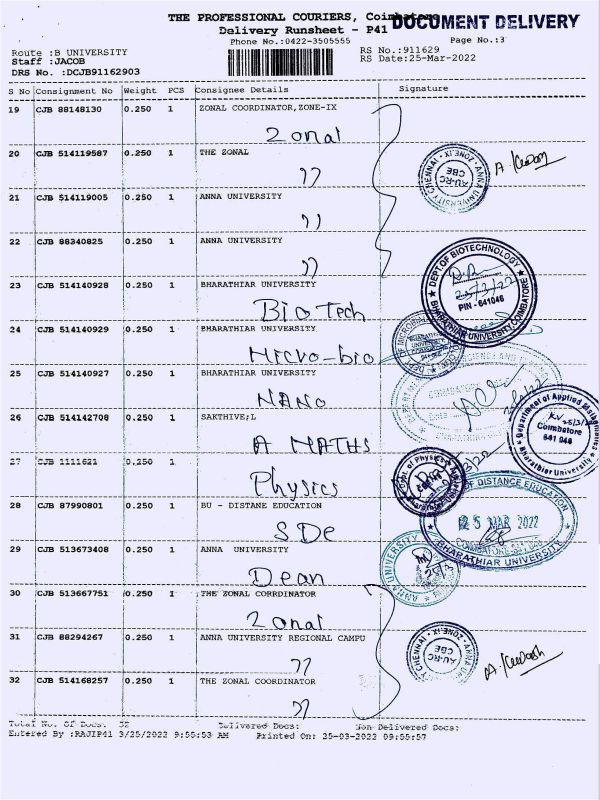 THE PROFESSIONAL COURIERS, Coimbatore
DOCUMENT DELIVERY
Delivery Runsheet - P41
Phone No.:0422-3505555
Page No.:3
Route :B UNIVERSITY
RS No.:911629
Staff :JACOB
RS Date:25-Mar-2022
DRS No. :DCJB91162903
S No Consignment No Weight PCS Consignee Details Signature
19 CJB 88148130 0.250 1 ZONAL COORDINATOR,ZONE-IX
Zonal
20 CJB 514119587 0.250 1 THE ZONAL
"
21 CJB 514119005 0.250 1 ANNA UNIVERSITY
"
22 CJB 88340825 0.250 1 ANNA UNIVERSITY
"
ANNA UNIVERSITY CHENNAI ZONE.IX
AU-RC
CBE
23 CJB 514140928 0.250 1 BHARATHIAR UNIVERSITY
Bio Tech
DEPT. OF BIOTECHNOLOGY
25/3/22
PIN - 641046
BHARATHIAR UNIVERSITY, COIMBATORE
24 CJB 514140929 0.250 1 BHARATHIAR UNIVERSITY
Micro-bio
25 CJB 514140927 0.250 1 BHARATHIAR UNIVERSITY
NANO
26 CJB 514142708 0.250 1 SAKTHIVE;L
A MATHS
Department of Applied Mathematics
25/3/22
Coimbatore
641 046
Bharathiar University
27 CJB 1111621 0.250 1
Physics
28 CJB 87990801 0.250 1 BU - DISTANE EDUCATION
SDe
OF DISTANCE EDUCATION
25 MAR 2022
BHARATHIAR UNIVERSITY
29 CJB 513673408 0.250 1 ANNA UNIVERSITY
Dean
ANNA UNIVERSITY
30 CJB 513667751 0.250 1 THE ZONAL CORRDINATOR
Zonal
31 CJB 88294267 0.250 1 ANNA UNIVERSITY REGIONAL CAMPU
"
ANNA UNIVERSITY CHENNAI ZONE.IX
AU-RC
CBE
32 CJB 514168257 0.250 1 THE ZONAL COORDINATOR
"
Total No. Of Docs: 32 Delivered Docs: Non Delivered Docs:
Entered By :RAJIP41 3/25/2022 9:55:53 AM Printed On: 25-03-2022 09:55:57